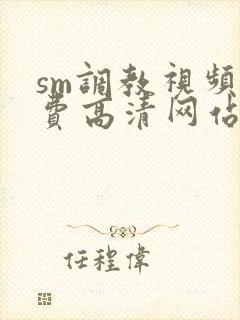 sm調教視頻
費高清网佔
任程偉